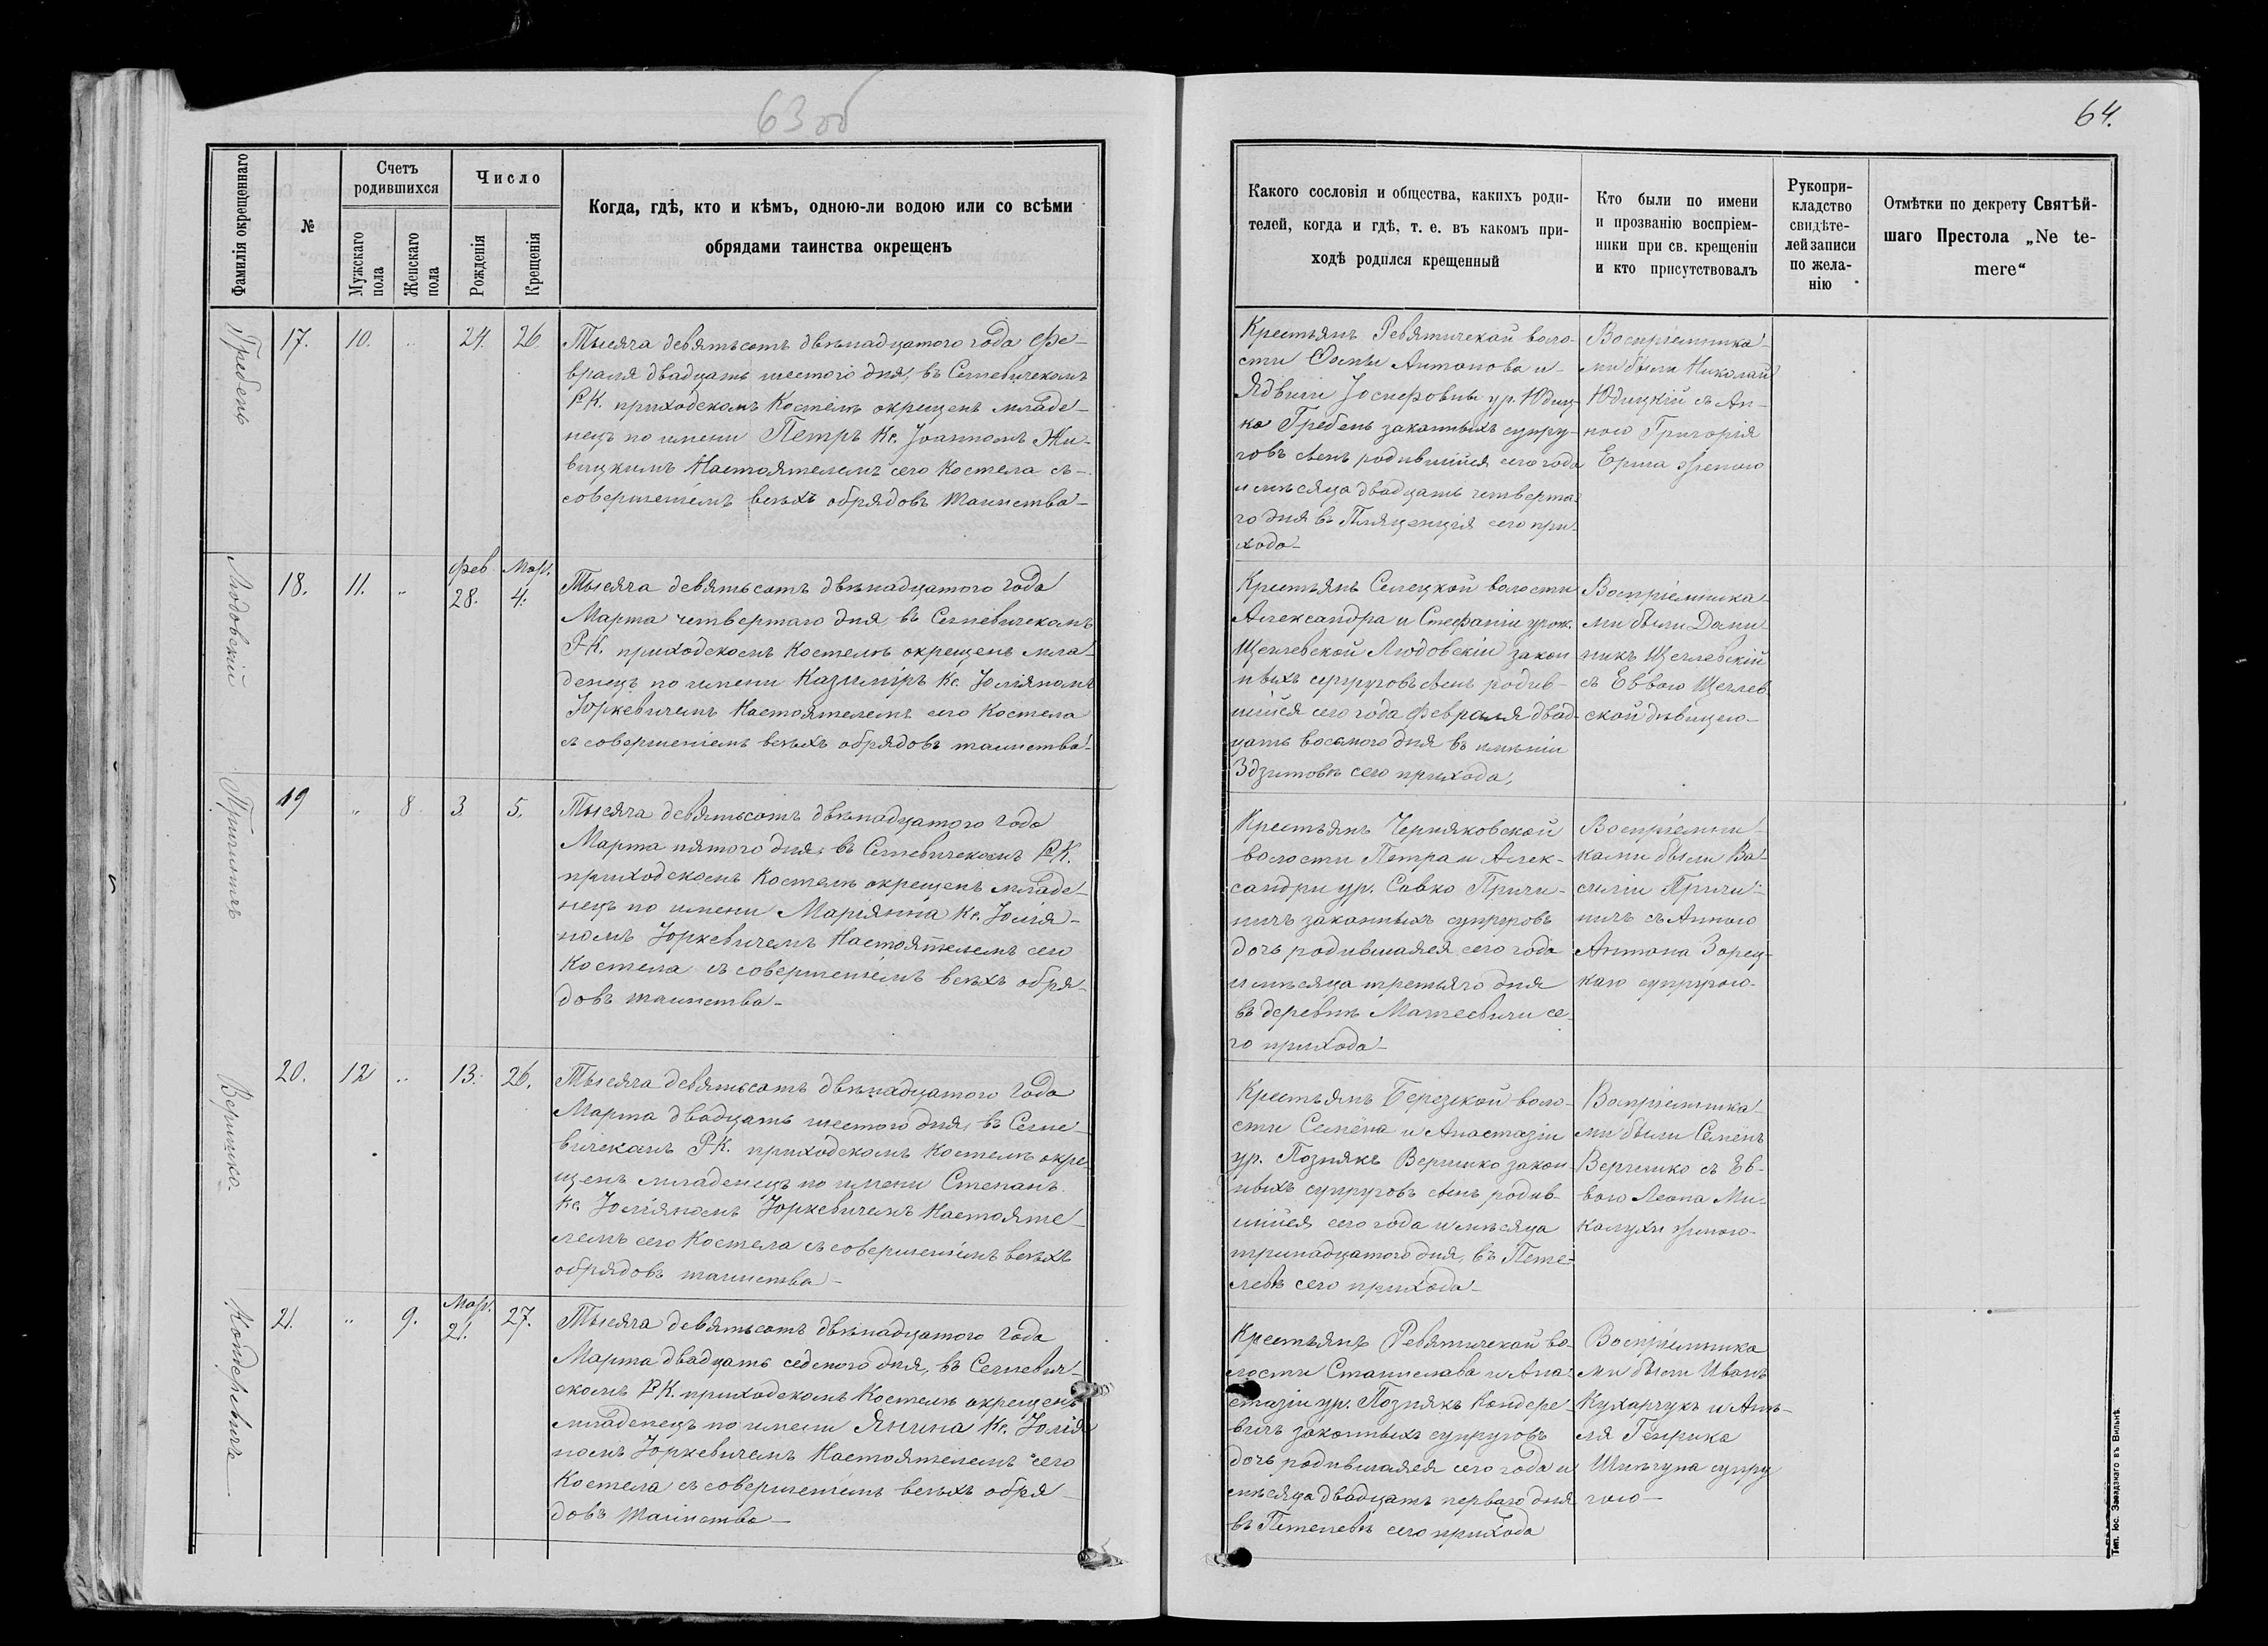 63 об
64.
Фамилія окрещеннаго
№
Счетъ родившихся
Мужскаго пола
Женскаго пола
Число
Рожденія
Крещенія
Когда, гдѣ, кто и кѣмъ, одною-ли водою или со всѣми
обрядами таинства окрещенъ
Какого сословія и общества, какихъ роди-
телей, когда и гдѣ, т. е. въ какомъ при-
ходѣ родился крещенный
Кто были по имени
и прозванію воспріем-
ники при св. крещеніи
и кто присутствовалъ
Рукопри-
кладство
свидѣте-
лей записи
по жела-
нію
Отмѣтки по декрету Святѣй-
шаго Престола „Ne te-
mere“
Гребень
17. 10. „ 24. 26.
Тысяча девятьсотъ двѣнадцатого года Фе-
враля двадцать шестого дня, въ Сегневичскомъ
Р.К. приходскомъ Костелѣ окрещенъ младе-
нецъ по имени Петръ Кс. Іоанномъ Жи-
вицкимъ Настоятелемъ сего Костела съ
совершеніемъ всѣхъ обрядовъ таинства
Крестьянъ Ревятичской воло-
сти Фомы Антонова и
Ядвиги Іосифовны ур. Юдиц-
ко Гребень законныхъ супру-
говъ сынъ родившійся сего года
и мѣсяца двадцать четверта-
го дня въ сего при-
хода
Воспріемника-
ми были Николай
Юдицкій съ Ан-
ною Григорія
женою
Людовскій
18. 11. „ Фев. 28. Мар. 4.
Тысяча девятьсотъ двѣнадцатого года
Марта четвертаго дня, въ Сегневичскомъ
Р.К. приходскомъ Костелѣ окрещенъ мла-
денецъ по имени Казиміръ Кс. Юліяномъ
Юркевичемъ Настоятелемъ сего Костела
съ совершеніемъ всѣхъ обрядовъ таинства
Крестьянъ Селецкой волости
Александра и Стефаніи урож.
Щеглевской Людовскіи закон-
ныхъ супруговъ сынъ родив-
шійся сего года февраля двад-
цать восьмого дня въ имѣніи
Здзитовѣ сего прихода,
Воспріемника-
ми были Доми-
никъ Щеглевскій
съ Еввою Щеглев-
ской дѣвицею
Пригничъ
19 „ 8 3. 5.
Тысяча девятьсотъ двѣнадцатого года
Марта пятого дня, въ Сегневичскомъ Р.К.
приходскомъ Костелѣ окрещенъ младе-
нецъ по имени Маріянна Кс. Юлія-
номъ Юркевичемъ Настоятелемъ сего
Костела съ совершеніемъ всѣхъ обря-
довъ таинства
Крестьянъ Черняковской
волости Петра и Алек-
сандри ур. Совко
законныхъ супруговъ
дочь родившаяся сего года
и мѣсяца третьяго дня
въ деревнѣ Матеевичи се-
го прихода
Воспріемни-
ками были Ва-
силій
съ Анною
Антона Зорец-
каго супругою
Веришко.
20. 12 „ 13. 26.
Тысяча девятьсотъ двѣнадцатого года
Марта двадцать шестого дня, въ Сегне-
вичскомъ Р.К. приходскомъ Костелѣ окре-
щенъ младенецъ по имени Степанъ
Кс. Юліяномъ Юркевичемъ Настояте-
лемъ сего Костела съ совершеніемъ всѣхъ
обрядовъ таинства
Крестьянъ Березской воло-
сти Семёна и Анастазіи
ур. Познякъ Веришко закон-
ныхъ супруговъ сынъ родив-
шійся сего года и мѣсяца
тринадцатого дня, въ Пете-
левѣ сего прихода
Воспріемника-
ми были Семёнъ
Веришко съ Ев-
вою Леона Ми-
калухи женою
Кондеревичъ
21. „ 9. Мар. 21. 27.
Тысяча девятьсотъ двѣнадцатого года
Марта двадцать седмого дня, въ Сегневич-
скомъ Р.К. приходскомъ Костелѣ окрещенъ
младенецъ по имени Янина Кс. Юлія-
номъ Юркевичемъ Настоятелемъ сего
Костела съ совершеніемъ всѣхъ обря-
довъ таинства
Крестьянъ Ревятичской во-
лости Станислава и Ана-
стазіи ур. Познякъ Кондере-
вичъ законныхъ супруговъ
дочь родившаяся сего года и
мѣсяца двадцать перваго дня
въ Петелевѣ сего прихода
Воспріемника
ми были Иванъ
Кухарчукъ и Анѣ-
ля Генрика
супру
гою
Тип. Іос. Завадзкаго въ Вильнѣ.